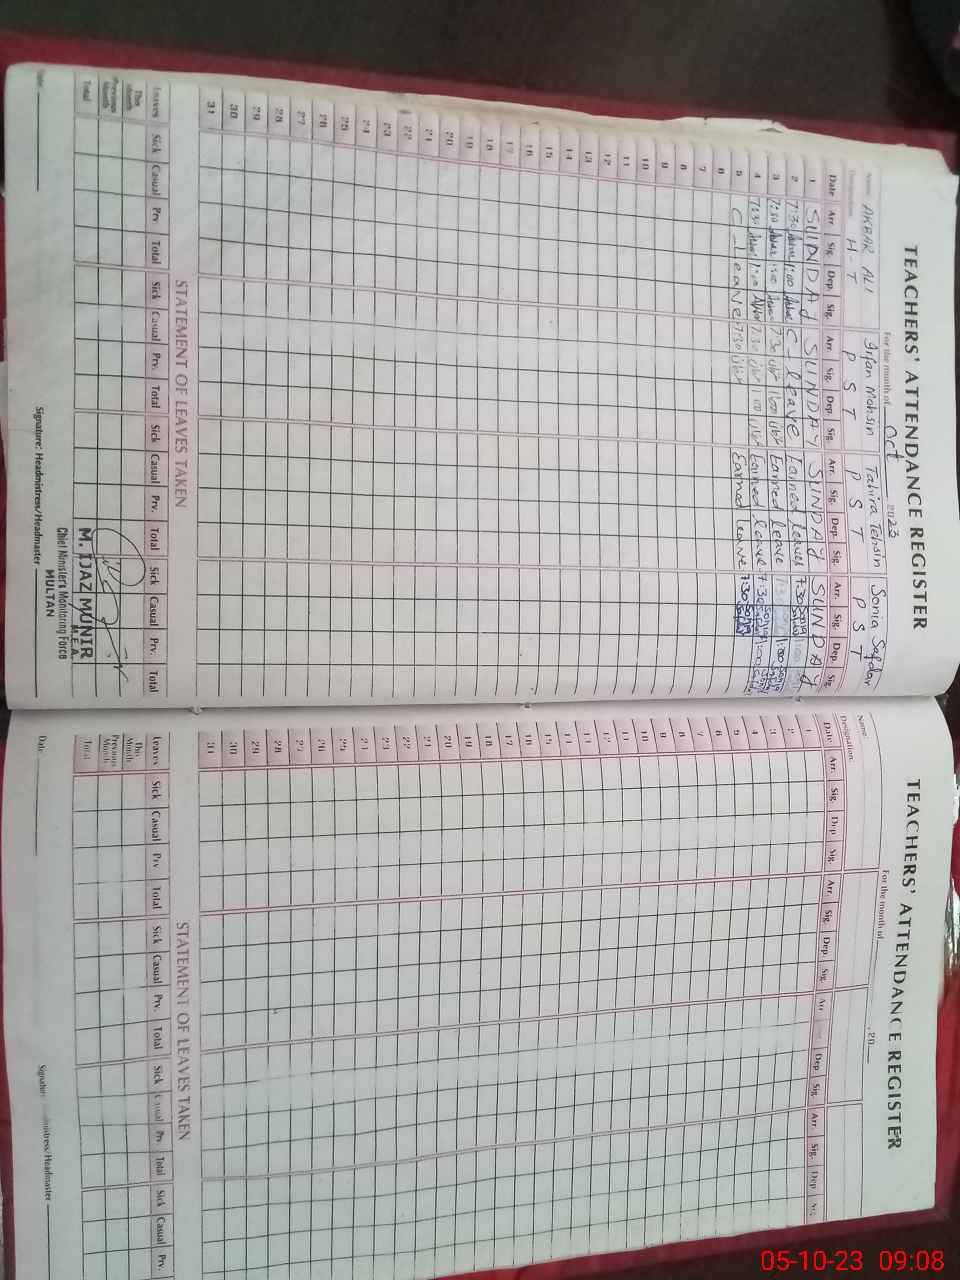 TEACHERS' ATTENDANCE REGISTER
For the month of Oct 2023
Name: AKBAR ALI Irfan Mohsin Tahira Tehsin Sonia Safdar
Designation: H-T P S T P S T P S T
Date Arr. Sig. Dep. Sig. Arr. Sig. Dep. Sig. Arr. Sig. Dep. Sig. Arr. Sig. Dep. Sig.
1 SUNDAY SUNDAY SUNDAY SUNDAY
2 7:30 1:00 C-leave Earned leaves 7:30 Sonia Safdar 1:00
3 7:30 1:00 7:30 1:00 Earned leave 1:00 Sonia Safdar
4 7:30 1:00 7:30 1:00 Earned leave 7:30 Sonia Safdar 1:00 Sonia Safdar
5 C-leave 7:30 Earned leave 7:30 Sonia Safdar
6
7
8
9
10
11
12
13
14
15
16
17
18
19
20
21
22
23
24
25
26
27
28
29
30
31
STATEMENT OF LEAVES TAKEN
Leaves Sick Casual Prv. Total Sick Casual Prv. Total Sick Casual Prv. Total Sick Casual Prv. Total
This Month
Previous Month
Total
M. IJAZ MUNIR
M.E.A.
Chief Minister's Monitoring Force
MULTAN
Date: Signature: Headmistress/Headmaster
TEACHERS' ATTENDANCE REGISTER
For the month of 20
Name:
Designation:
Date Arr. Sig. Dep Sig. Arr. Sig. Dep Sig. Arr Dep Sig. Arr. Sig. Dep
1
2
3
4
5
6
7
8
9
10
11
12
13
14
15
16
17
18
19
20
21
22
23
24
25
26
27
28
29
30
31
STATEMENT OF LEAVES TAKEN
Leaves Sick Casual Prv Total Sick Casual Prv. Total Sick Casual Prv. Total Sick Casual Prv.
This Month
Previous Month
Total
Date: Signature: Headmistress/Headmaster
05-10-23 09:08